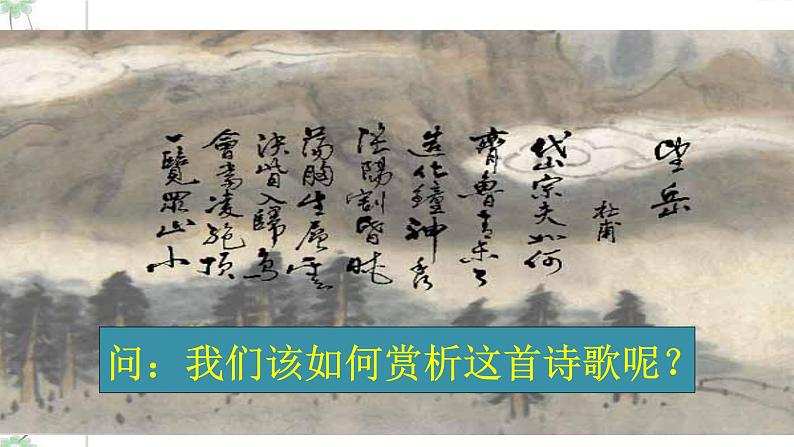 望岳
杜甫
岱宗夫如何
齊魯青未了
造化鐘神秀
陰陽割昏曉
蕩胸生層雲
決眥入歸鳥
會當凌絕頂
一覽眾山小
问：我们该如何赏析这首诗歌呢？